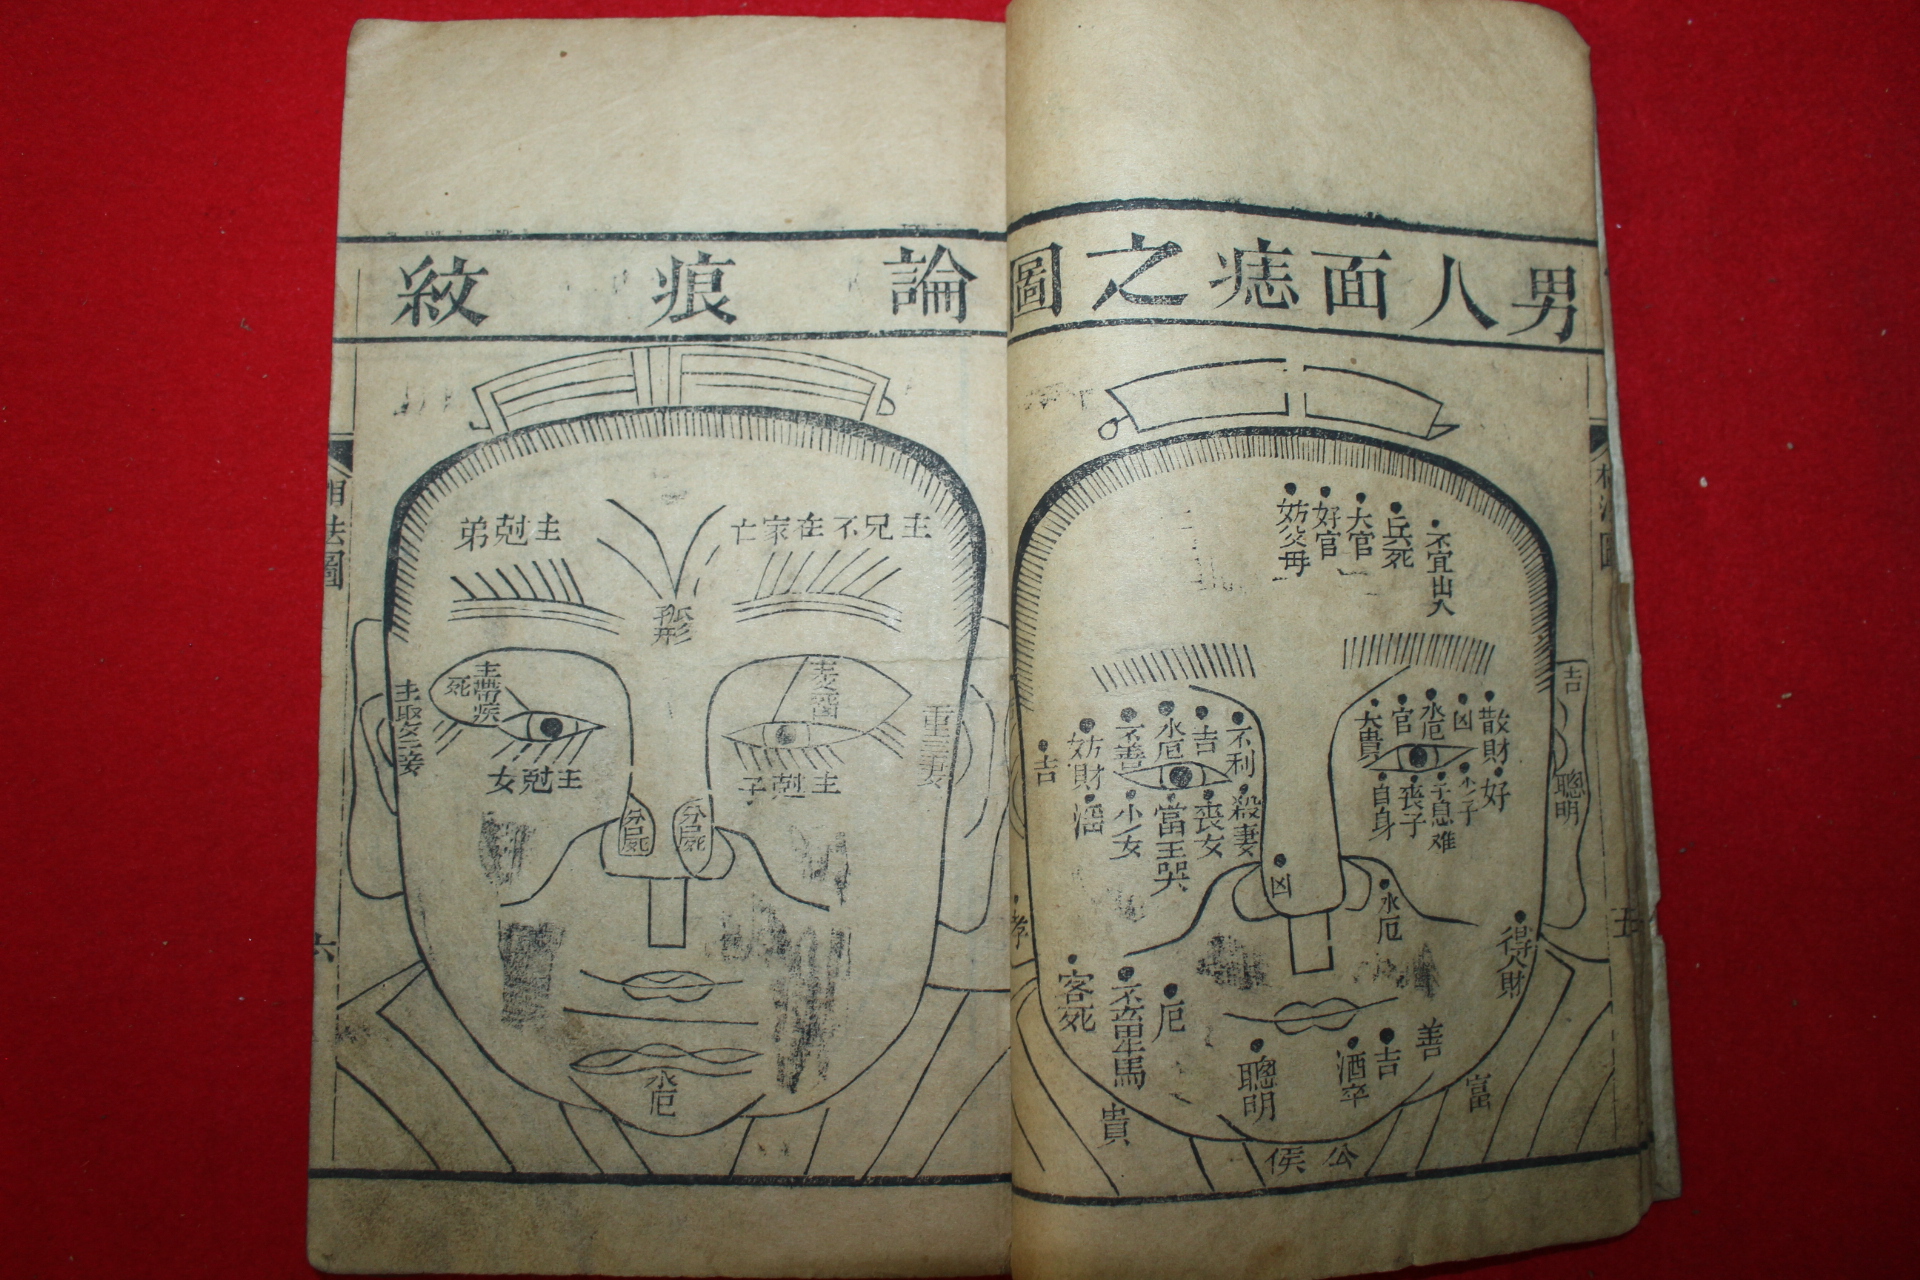 男人面痣之圖
不宜出入
兵死
大官
好官
妨父母
散財
凶
水厄
官
大貴
好
少子
子息难
喪子
自身
吉
聰明
不利
吉
水厄
不善
妨財
吉
殺妻
喪女
當王哭
少女
凶
水厄
得人財
厄
客死
善
吉
酒卒
聰明
富
貴
公侯
五
論痕紋
主兄不在家亡
主尅弟
孤形
主帶疾死
主娶二妾
重三妻
主尅子
主尅女
分屍死
分屍死
水厄
相法圖
六